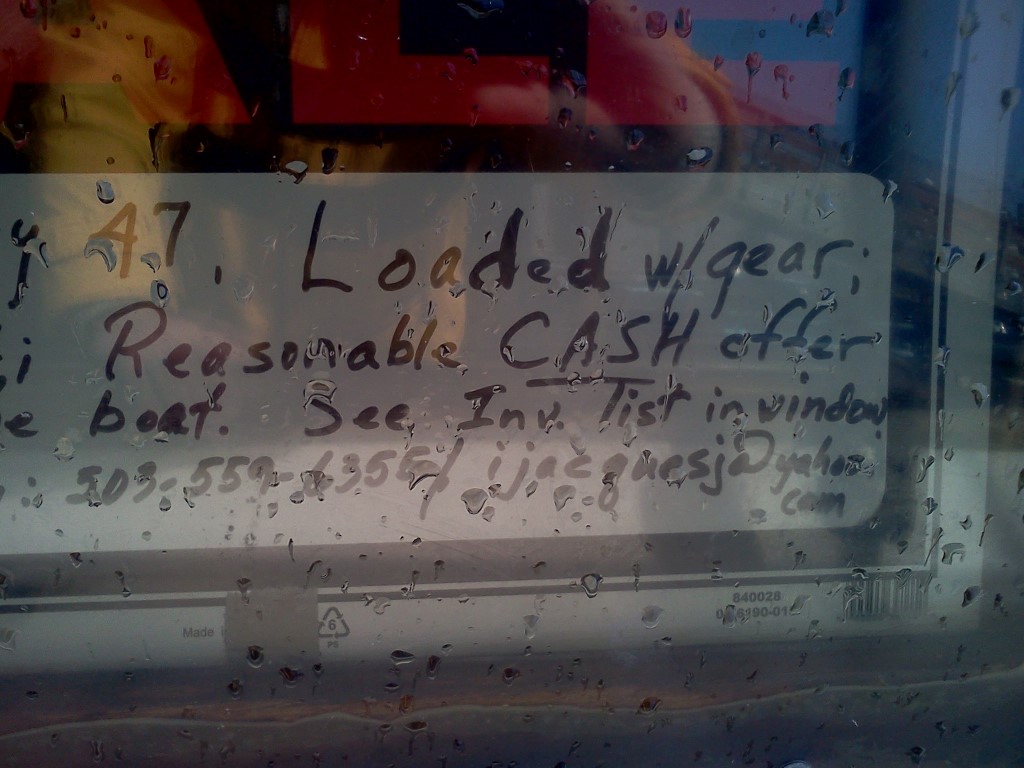 ALE
y 47. Loaded w/gear;
i Reasonable CASH offer
e boat. See Inv. list in window
: 503-559-6355/ ijacquesj@yahoo.
com
840028
Made
6
PS